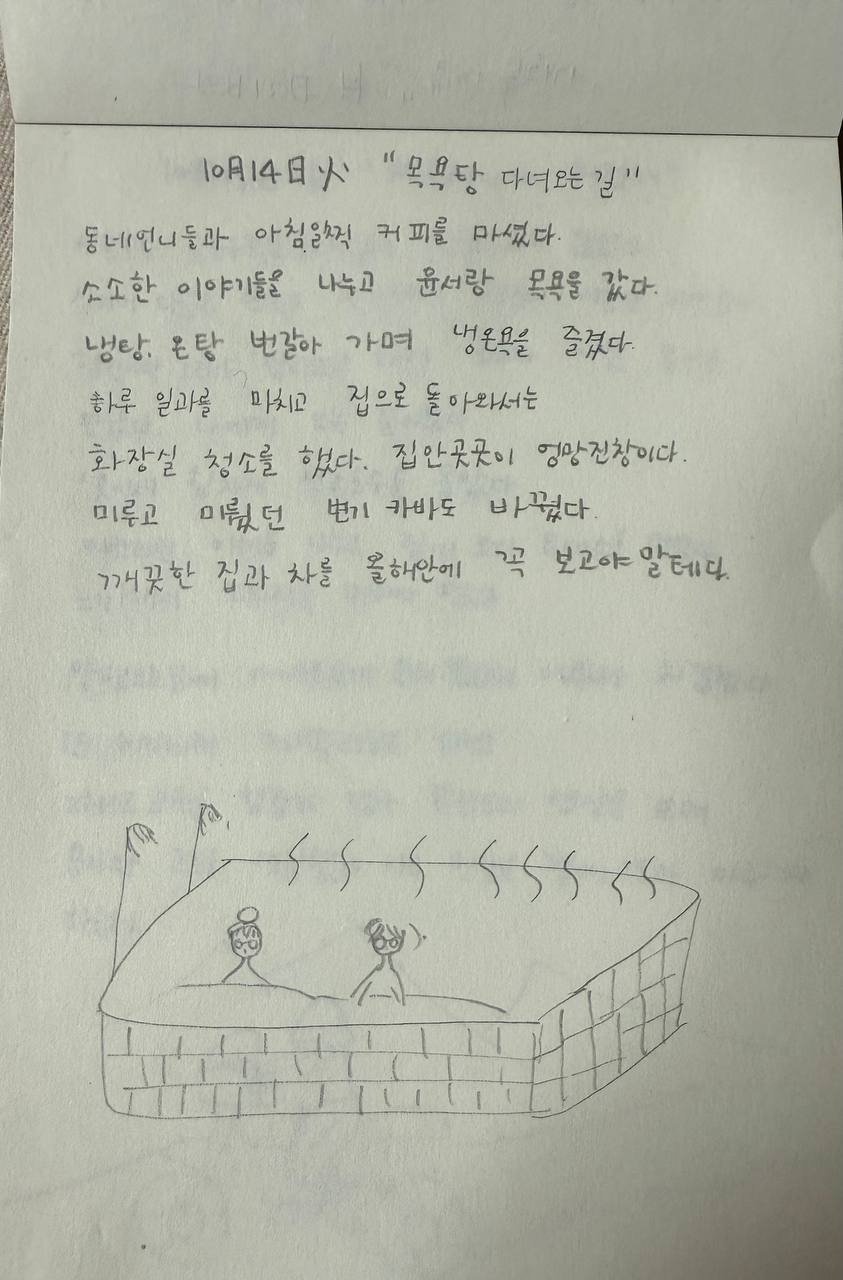 10月14日火 "목욕탕 다녀오는 길"
동네언니들과 아침일찍 커피를 마셨다.
소소한 이야기들을 나누고 윤서랑 목욕을 갔다.
냉탕. 온탕 번갈아 가며 냉온욕을 즐겼다.
하루 일과를 마치고 집으로 돌아와서는
화장실 청소를 했다. 집안곳곳이 엉망진창이다.
미루고 미뤘던 변기 카바도 바꿨다.
깨끗한 집과 차를 올해안에 꼭 보고야 말테다.